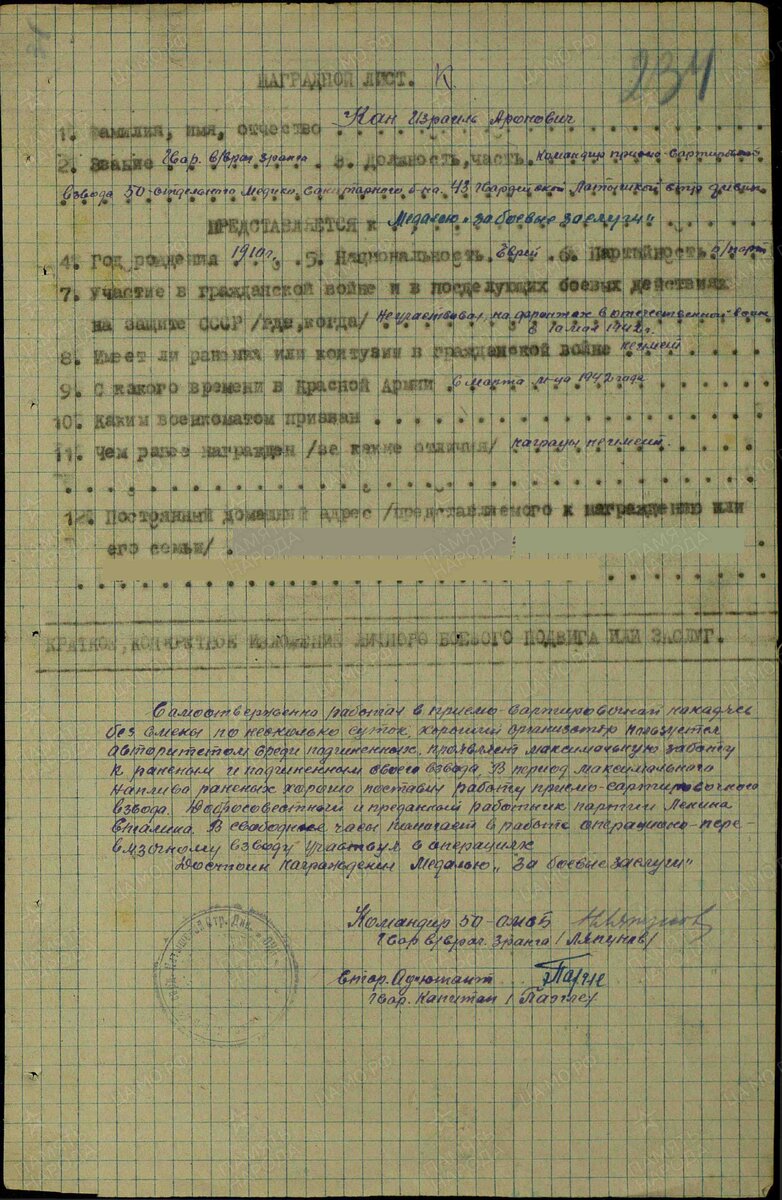 234
НАГРАДНОЙ ЛИСТ. К
1. Фамилия, имя, отчество Кан Израиль Аронович
2. Звание Гвар. в/врач 3ранга 3. Должность, часть Командир приемо-сартировочн
взвода 50-отдельного Медико-санитарного б-на 43 Гвардейской Латышской стр дивизи
ПРЕДСТАВЛЯЕТСЯ к Медалью "за боевые заслуги"
4. Год рождения 1910г. 5. Национальность Еврей 6. Партийность б/парт
7. Участие в гражданской войне и в последующих боевых действиях
на защите СССР /где, когда/ Неучаствовал, на фронтах в отечественной войне
с 10 мая 1942г.
8. Имеет ли ранения или контузии в гражданской войне неимеет
9. С какого времени в Красной Армии с марта м-ца 1942 года
10. Каким военкоматом призван
11. Чем ранее награжден /за какие отличия/ награды неимеит.
12. Постоянный домашний адрес /представляемого к награждению или
его семьи/
КРАТКОЕ, КОНКРЕТНОЕ ИЗЛОЖЕНИЕ ЛИЧНОГО БОЕВОГО ПОДВИГА ИЛИ ЗАСЛУГ.
Самоотверженно работая в приемо-сартировочной находясь
без смены по несколько суток, хороший организатор пользуется
авторитетом среди подчиненных, проявляет максимальную заботу
к раненым и подчиненным своего взвода. В период максимального
наплыва раненых хорошо поставил работу приемо-сартировочного
взвода. Добросовестный и преданный работник партии Ленина
Сталина. В свободные часы помогает в работе операционо-пере-
вязочному взводу участвуя в операциях
Достоин награждения Медалью "За боевые заслуги"
Командир 50-ОМСБ
Гвар в/врач. 3ранга /Ляпунов/
Гвар. Капитан /
ПАМЯТЬ НАРОДА
ЦАМО.РФ